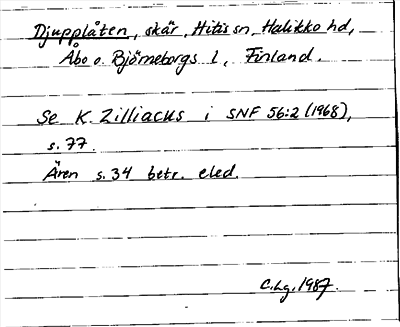 Djupplåten, skär, Hitis sn, Halikko hd,
Åbo o. Björneborgs l, Finland.
Se K. Zilliacus i SNF 56:2 (1968),
s. 77.
Även s. 34 betr. eled.
C. Lg. 1987.